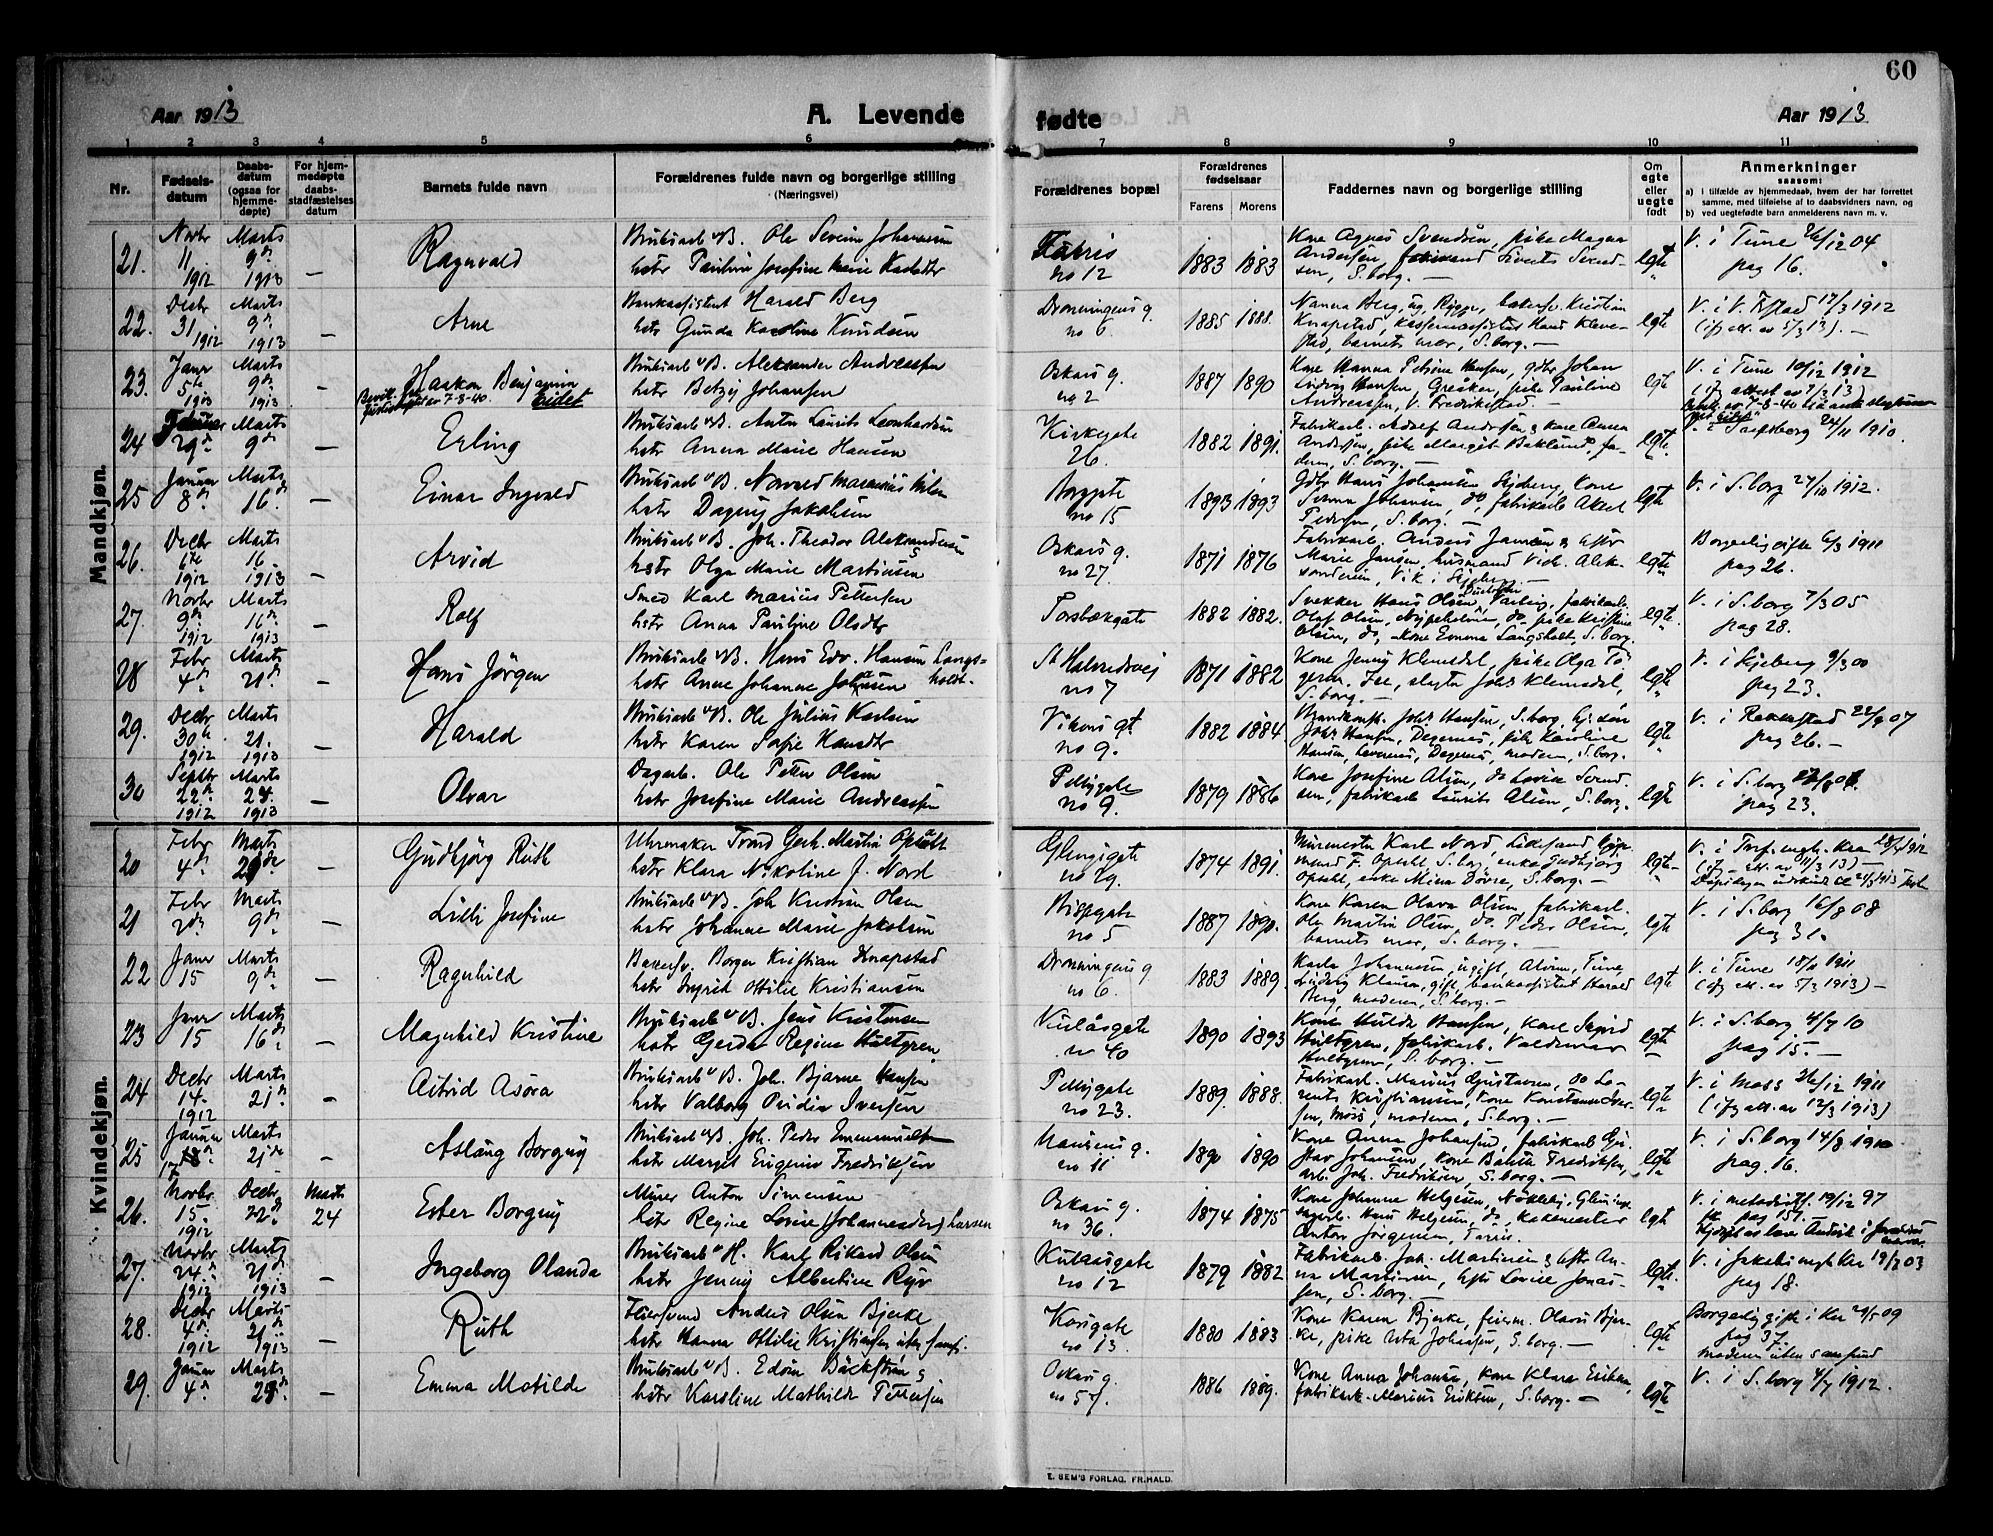 60
Aar 1913
A. Levende
fødte
Aar 1913
1 2 3 4 5 6 7 8 9 10 11
Nr.
Fødsels-
datum
Daabs-
datum
(ogsaa for
hjemme-
døpte)
For hjem-
medøpte
daabs-
stadfæstelses
datum
Barnets fulde navn
Forældrenes fulde navn og borgerlige stilling
(Næringsvei)
Forældrenes bopæl
Forældrenes
fødselsaar
Farens Morens
Faddernes navn og borgerlige stilling
Om
egte
eller
uegte
født
Anmerkninger
saasom:
a) i tilfælde av hjemmedaab, hvem der har forrettet
samme, med tilføielse af to daabsvidners navn, og
b) ved uegtefødte børn anmelderens navn m. v.
Mandkjøn.
21. Novbr 11 1912 Marts 9de 1913 — Ragnvald
Bruksarb. v B. Ole Severin Johannesen
hstr Pauline Josefine Marie
no 12 1883 1883
Kone Agnes Svendsen, pike Magna
Andersen, S.borg. —
lgte V. i Tune 26/12 04
pag 16.
22. Decbr 31 1912 Marts 9de 1913 — Arne
Bankassistent Harald Berg
hstr Gunda Karoline Knudsen
Dronningens g. no 6 1885 1888.
Nanna Berg, ug, Rygge, bakersv. Kristian
Knapstad, Hans Kleve-
stad, barnets mor, S.borg. —
lgte (if att. av 5/3 13). —
23. Janr 5te 1913 Marts 9de 1913 — Haakon Benjamin
Bruksarb v B. Aleksander Andreassen
hstr Betzy Johansen
Oskars g. no 2 1887 1890
Kone Hanna Petrine Hansen, gdbr Johan
Ludvig Hansen, Greåker, pike Pauline
Andreassen, V. Fredrikstad. —
lgte V. i Tune 10/12 1912
24 29de Marts 9de — Erling
Bruksarb v B. Anton Laurits Leonhardsen
hstr Anna Marie Hansen
Kirkegate 26. 1882 1891.
Fabrikarb. Adolf Andersen & kone Anna
Andersen, pike Margit Baklund, fa-
deren, S.borg. —
lgte. V. i Sarpsborg 24/11 1910.
25 Januar 8de Marts 16de — Einar Ingvald
Bruksarb v B. Norvald Marenius
hstr Dagny Jakobsen
Borggate no 15 1893 1893
Gdbr Hans Johansen Skjeberg, Kone
Selma Johansen, do, fabrikarb Aksel
Pedersen, S.borg. —
lgte V. i S.borg 24/10 1912.
26. Decbr 6te 1912 Marts 16. 1913 — Arvid
Bruksarb v B. Joh. Theodor Aleksandersen
hstr Olga Marie Martinsen
Oskars g. no 27. 1871 1876
Fabrikarb. Anders Jansen & hstr
Marie Jansen, husmand Vidr. Alek-
sandersen, Vik i Skjeberg. —
lgte Borgerlig viet 6/3 1911
pag 26.
27. Novbr 9de 1912 Marts 16de 1913 Rolf
Smed Karl Marius Pettersen
hstr Anna Pauline Olsdtr
Torsbækgate 1882 1882.
Svekker Hans Olsen, Varteig, fabrikarb.
Olaf Olsen, do, pike Kristine
Olsen, do, kone Emma Langsholt, S.borg.
lgte. V. i S.borg 7/3 05
pag 28.
28 Febr 4de Marts 21de — Hans Jörgen
Bruksarb v B. Hans Edv. Hansen Langs-
holt.
hstr Anne Johanne Johansen
St Halvardsvej no 7 1871 1882
Kone Jenny Klemsdal, pike Olga Tö-
gersen, Ise, slagter Johs Klemsdal,
S.borg —
lgte V. i Skjeberg 9/3 00
pag 23.
29. Decbr 30te 1912 Marts 21. 1913 — Harald
Bruksarb v B. Ole Julius Karlsen
hstr Karen Sofie Hansdtr
Vikars gt no 9. 1882 1884
Brandkonst. Johs Hansen, S.borg,
Johs Hansen, Degernes, pike Karoline
Hansen, Degernes, moderen, S.borg.
lgte V. i Rakkestad 22/9 07
pag 26. —
30 Septbr 22de 1912 Marts 24. 1913 — Olvar
Dagarb. Ole Petter Olsen
hstr Josefine Marie Andreassen
Pellygate no 9. 1879 1886
Kone Josefine Olsen, do Lovise Svend-
sen, fabrikarb Laurits Olsen, S.borg.
lgte V. i S.borg
pag 23.
Kvindekjøn.
20 Febr 4de Marts — Gudbjörg Ruth
Uhrmaker Trond Gerh. Martin Opsahl
hstr Klara Nikoline f. Nord
Glengsgate no 29. 1874 1891.
Murmester Karl Nord,
mund F. Opsahl S.borg, enke Gudbjörg
Opsahl, enke Mina Dövre, S.borg. —
lgte
21 Febr 2den Marts 9de — Lilli Josefine
Bruksarb v B. Joh Kristian Olsen
hstr Johanne Marie Jakobsen
Bispegate no 5 1887 1890.
Kone Karen Olava Olsen, fabrikarb.
Ole Martin Olsen, do. Peder Olsen,
barnets mor, S.borg. —
lgte V. i S.borg 16/8 08
pag 31.
22 Janr 15 Marts 9de — Ragnhild
Bakersv. Borger Kristian Knapstad
hstr Ingrid Ottilie Kristiansen
Dronningens g no 6. 1883 1889.
Karla Johannesen, ugift, Alvim, Tune,
Ludvig Klausen, gift, bankassistent Harald
Berg, moderen, S.borg. —
lgte V. i Tune 18/11 1911
(if att. av 5/3 1913) —
23 Janr 15 Marts 16de — Magnhild Kristine
Bruksarb v B. Jens Kristensen
hstr Gerda Regine Hultgren
no 40 1890 1893
Kone Hulda Hansen, kone Sigrid
Hultgren, fabrikarb. Valdemar
Hultgren, S.borg. —
lgte V. i S.borg 4/7 10
pag 15. —
24 Decbr 14. 1912 Marts 21de — Astrid Asora
Bruksarb v B. Joh. Bjarne Hansen
hstr Valborg Pridia Iversen
Pellygate no 23. 1889. 1888.
Fabrikarb. Marius Gustavsen, do Lo-
rents Kristiansen, kone Konstanse Iver-
sen, Moss, moderen, S.borg. —
lgte V. i Moss 26/12 1911
(if att. av 12/3 1913)
25 Januar 17 Marts 21de — Aslaug Borgny
Bruksarb v B. Joh. Peder
hstr Margit Eugenie Fredriksen
Hansens g. no 11 1890 1890
Kone Anna Johansen, fabrikarb Gu-
stav Johansen, kone Berntine Fredriksen,
arb. Joh. Fredriksen, S.borg. —
lgte V. i S.borg 14/8 1910
pag. 16.
26. Novbr 15. 1912 Decbr 22de Marts 24 Ester Borgny
Murer Anton Simensen
hstr Regine Lovise (Johannesdtr) Larsen
Oskars g. no 36. 1874 1875
Kone Johanne Helgesen, Nökleby, Glemminge
Hans Helgesen, do, bakermester
Anton Jörgensen,
lgte V. i metodistk. 19/12 97
pag 157.
27. Novbr 24de 1912 Marts 21de 1913 — Ingeborg Olanda
Bruksarb v H. Karl Rikard Olsen
hstr Jenny Albertine Ryv
Kulaasgate no 12 1879 1882
Fabrikarb. Joh. Martinsen & hstr An-
na Martinsen, hstr Lovise Jonas-
sen, S.borg. —
lgte. V. i Jakobs mgh Kra 19/12 03
pag 18.
28. Decbr 4de 1912 Marts 21de 1913 — Ruth
Feiersvend Anders Olsen Bjerke
hstr Hanna Ottilie Kristiansen uten samf.
Korsgate no 13. 1880 1883.
Kone Karen Bjerke, feierm. Olavus Bjer-
ke, pike Asta Johansen, S.borg. —
lgte Borgerlig gifte i Kra 29/5 09
pag 37.
moderen uten samfund
29. Januar 4de Marts — Emma Motilde
Bruksarb v B. Edön Bäckström &
hstr Karoline Mathilde Pettersen
Oskars g. no 57. 1886 1889.
Kone Anna Johansen, kone Klara Eriksen,
fabrikarb. Marius Eriksen, S.borg. —
lgte V. i S.borg 4/7 1912.
E. SEM'S FORLAG, FR.HALD.